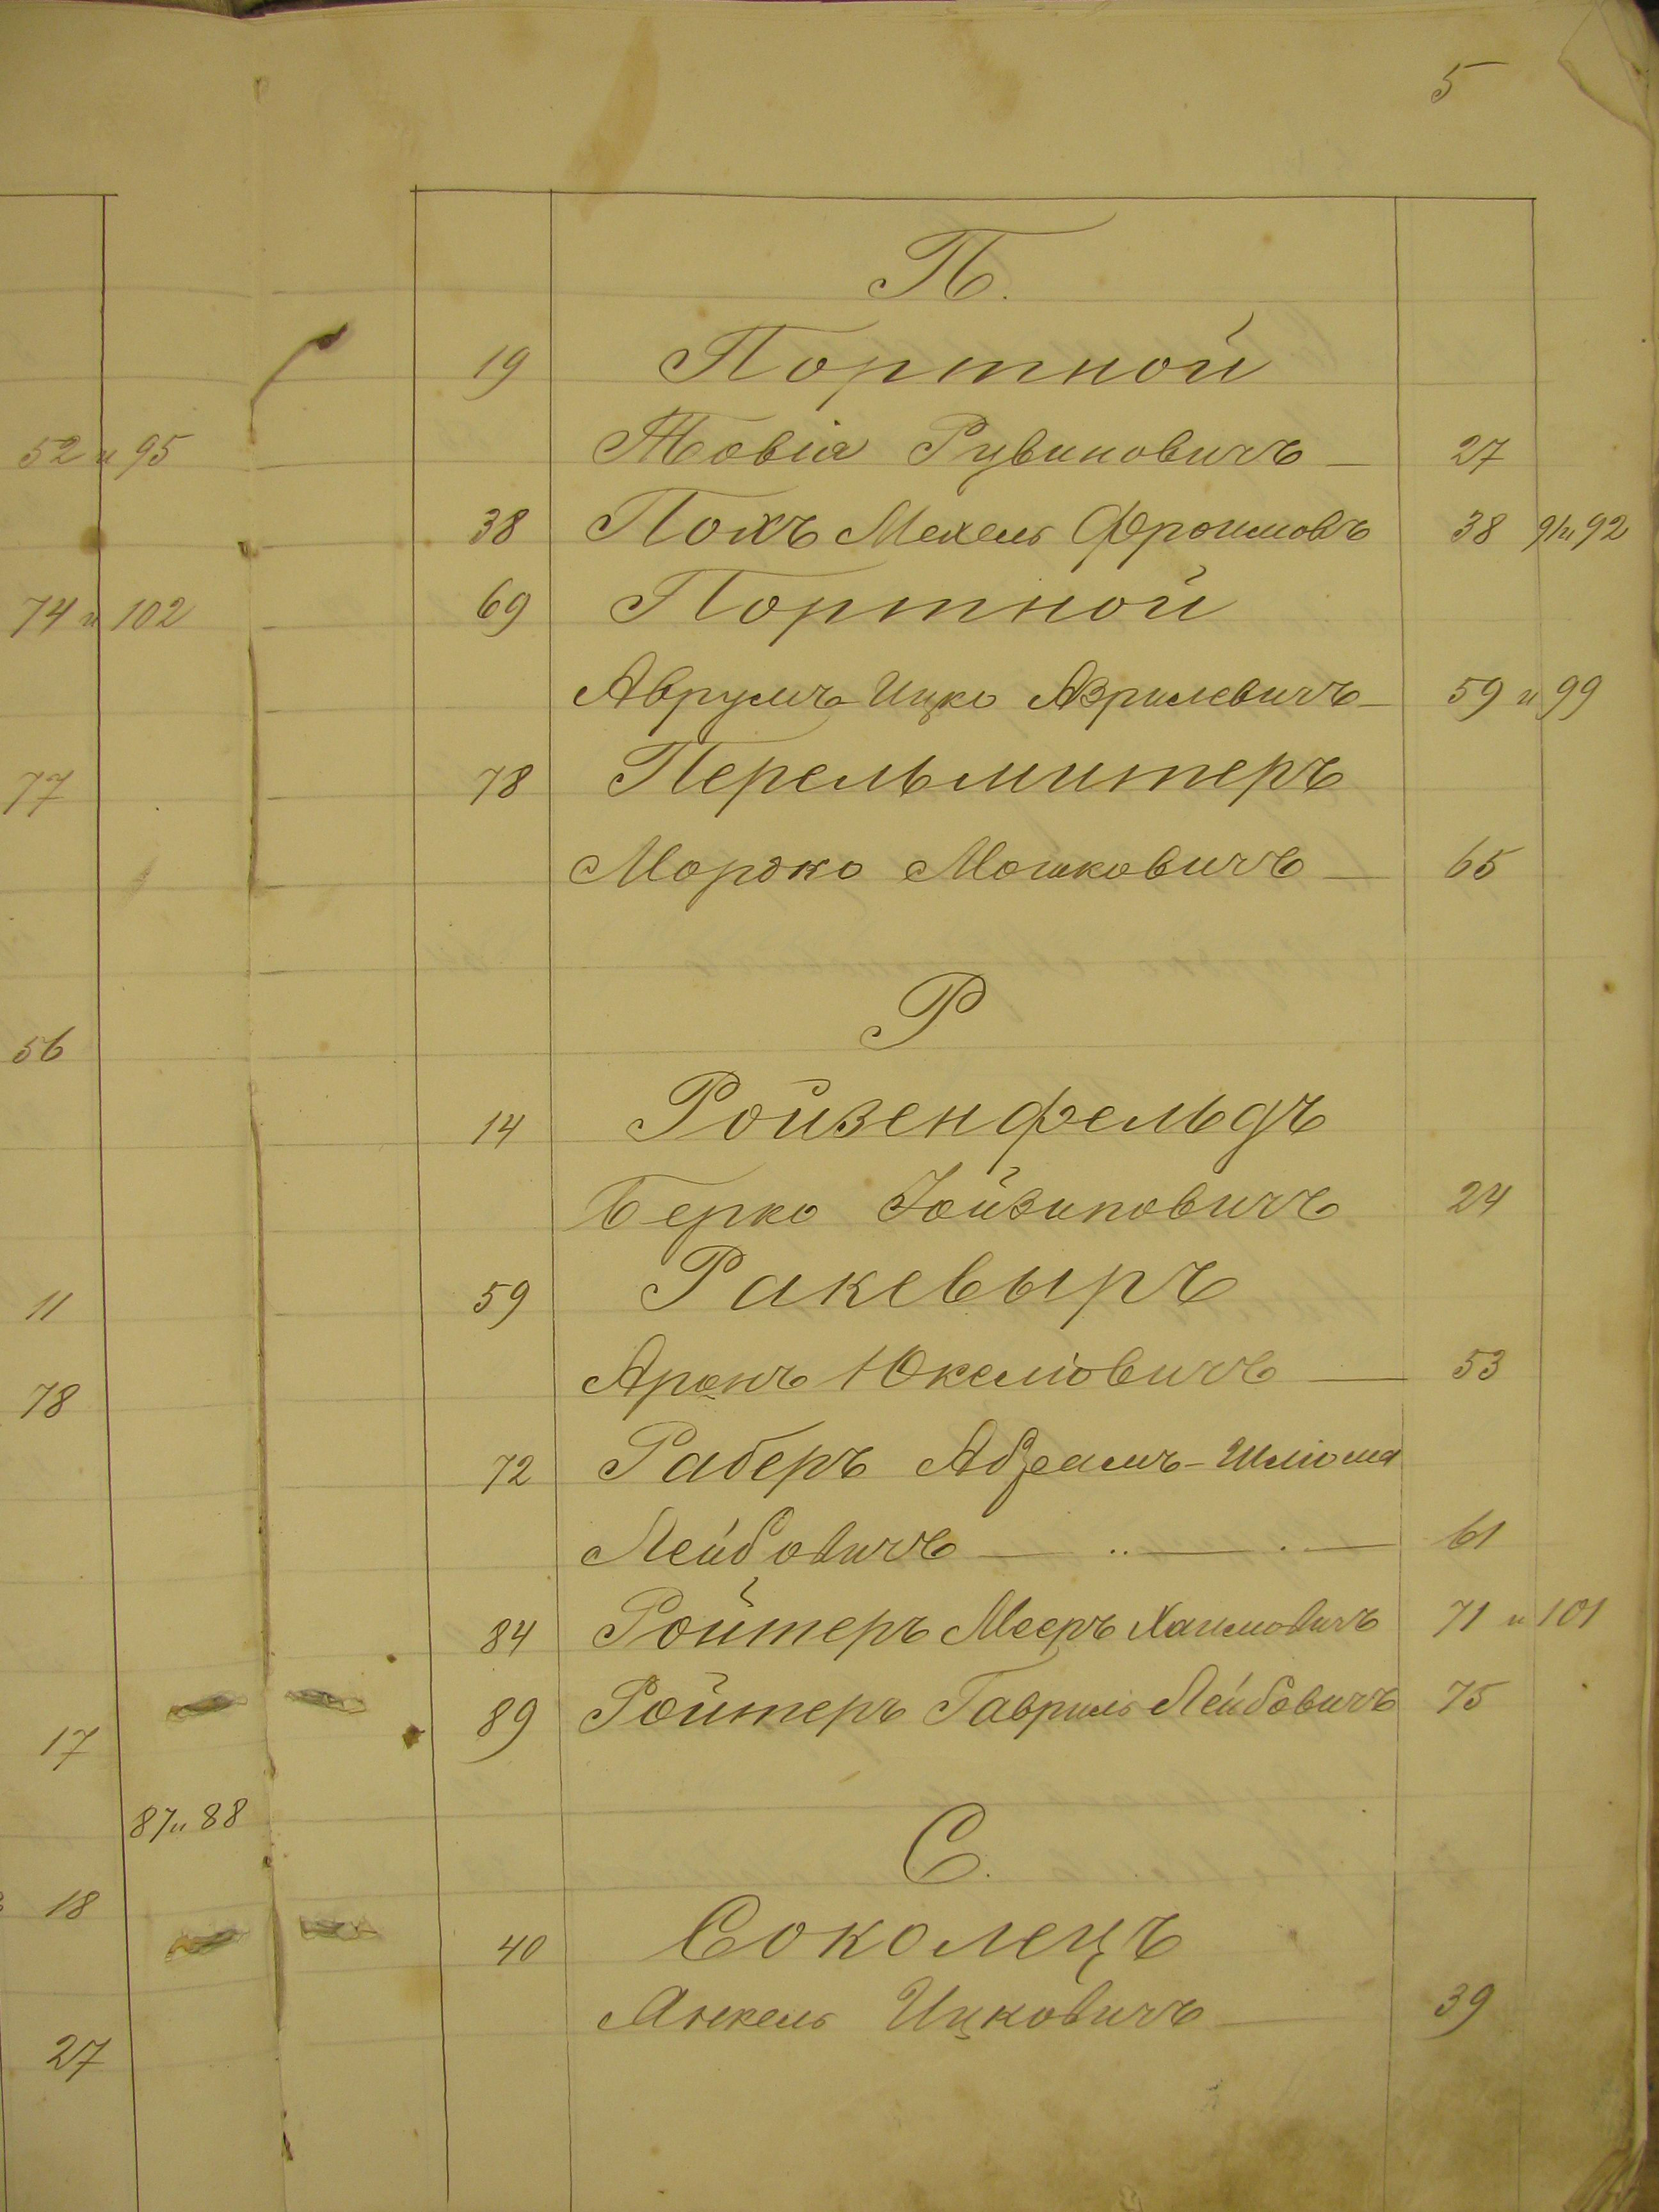 52 и 95
74 и 102
77
56
11
78
17
87 и 88
18
27
5
П.
19 Портной
Товіа Рувиновичъ — 27
38 Похъ Мехель Фроимовъ 38 91 и 92
69 Портной
Аврумъ-Ицко Азрилевичъ — 59 и 99
78 Перельмитеръ
Мордко Мошковичъ — 65
Р
14 Ройзенфельдъ
Берко 24
59 Ракевыръ
Аронъ Юкеліовичъ — 53
72 Раберъ Абрамъ-Шліома
Лейбовичъ — .. — . — 61
84 Ройтеръ Мееръ Хаимовичъ 71 и 101
89 Ройтеръ Гавриль Лейбовичъ 75
С.
40 Соколецъ
Ицковичъ — 39